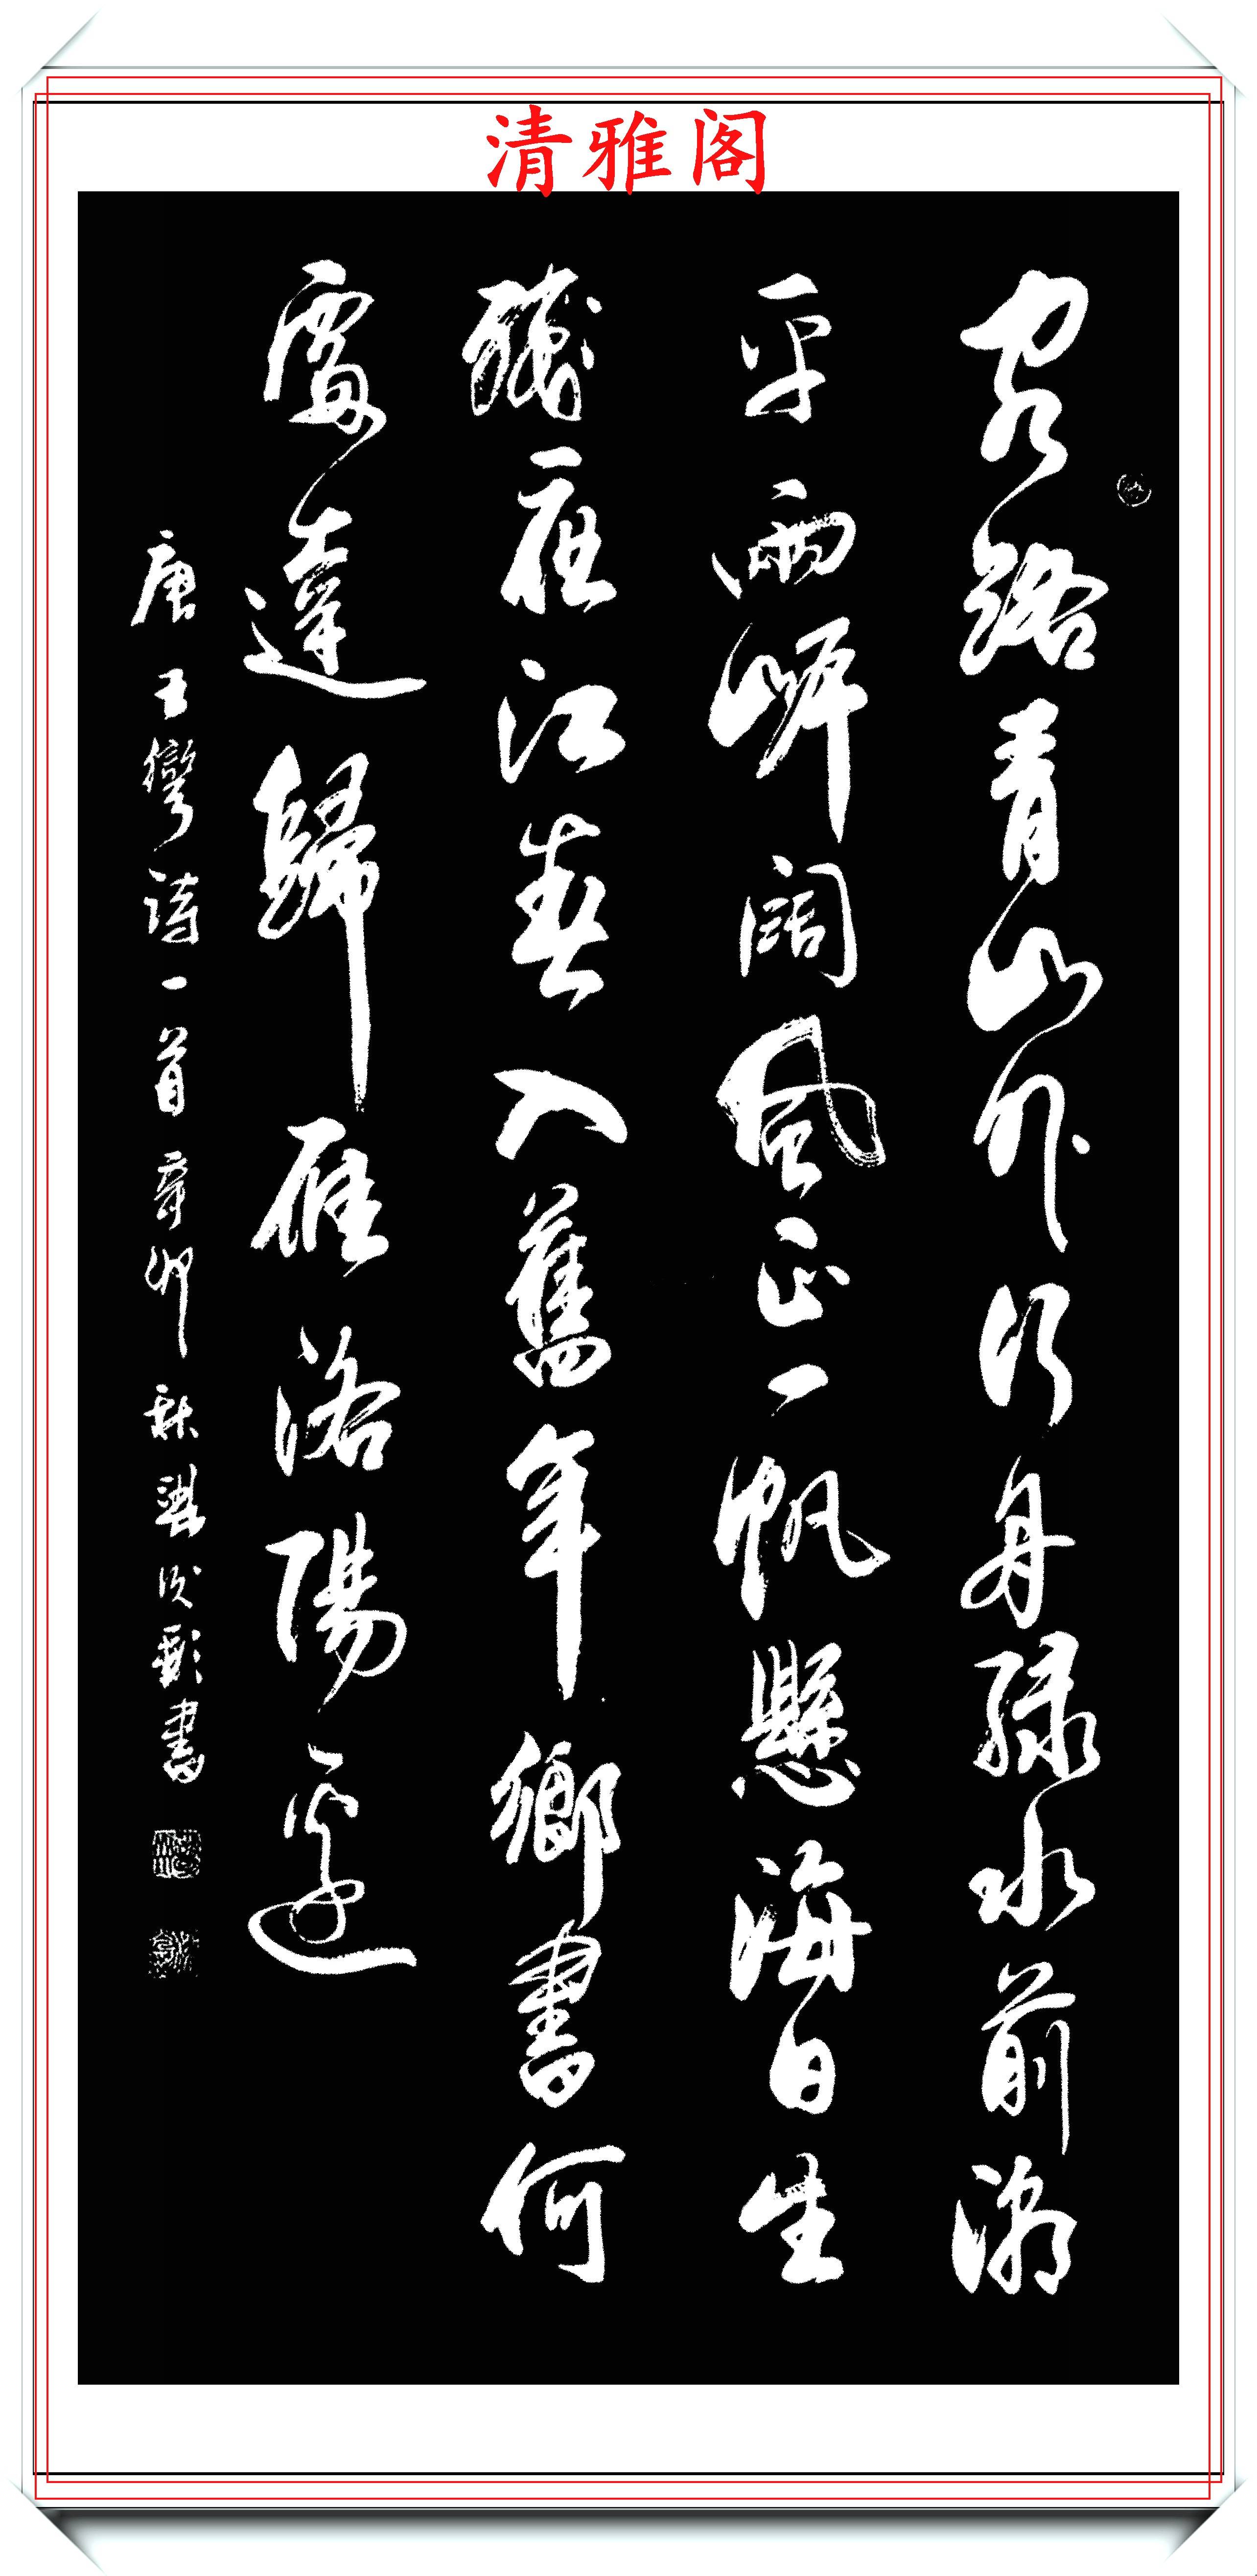 清雅阁
客路青山外行舟緑水前潮
平兩岸闊風正一帆懸海日生
殘夜江春入舊年鄉書何
處達歸雁洛陽邊
唐王灣詩一首辛卯秋書